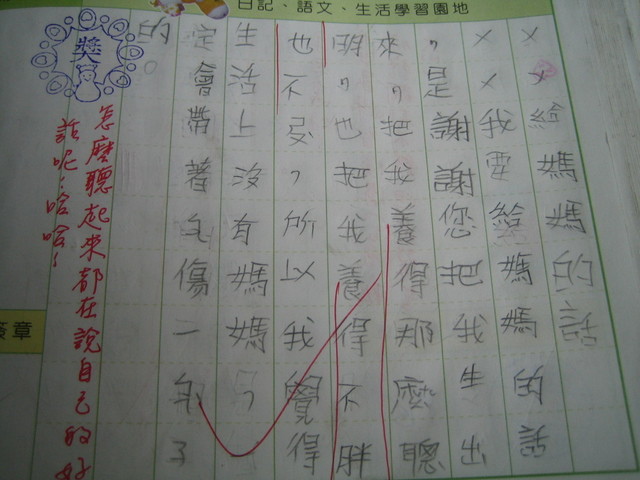 日記、語文、生活學習園地
××給媽媽的話
××我要給媽媽的話
，是謝謝您把我生出
來，把我養得那麼聰
明，也把我養得不胖
也不，所以我覺得
生活上沒有媽媽，
定會帶著傷一子
的。
獎
怎麼聽起來都在說自己的好
話呢！哈哈！
簽章